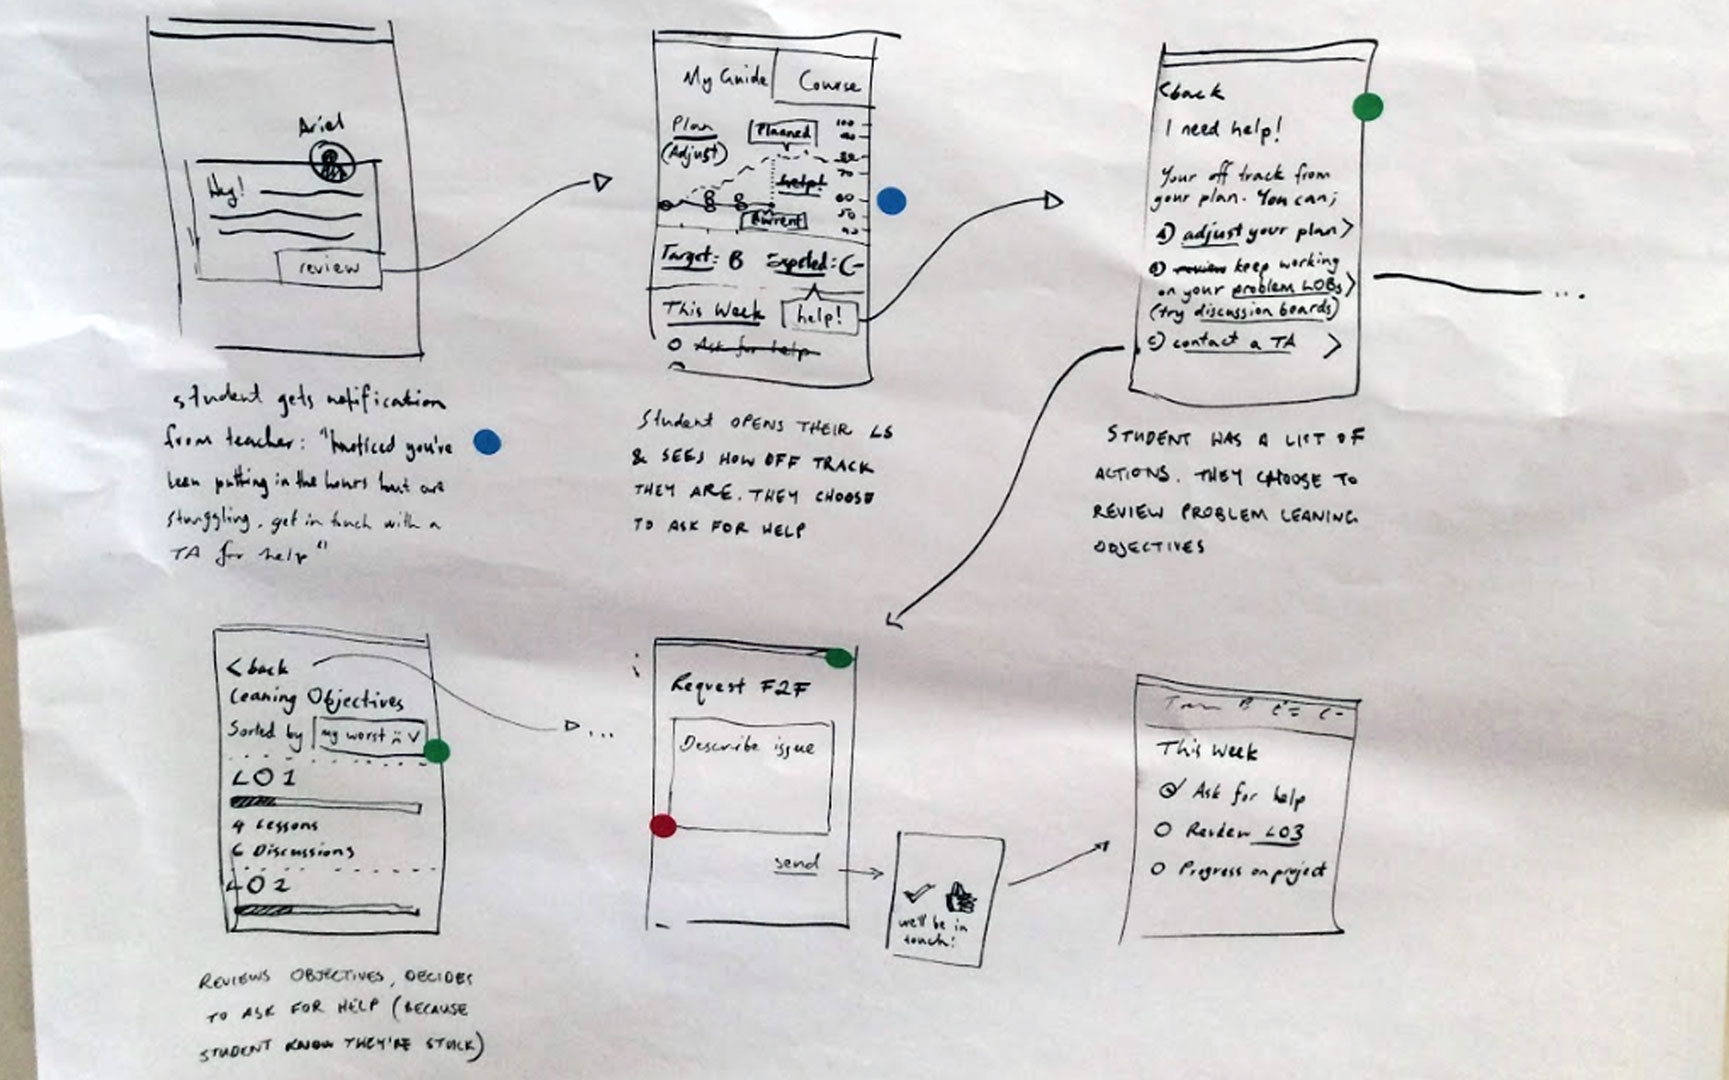 Ariel
Hey!
review
student gets notification
from teacher: "I noticed you've
been putting in the hours but are
struggling. get in touch with a
TA for help"
My Guide
Course
Plan
(Adjust)
Planned
help!
Current
100
90
80
70
60
50
40
Target: B Expected: C-
This Week
help!
Ask for help
Student OPENS THEIR LS
& SEES HOW OFF TRACK
THEY ARE. THEY CHOOSE
TO ASK FOR HELP
<back
I need help!
Your off track from
your plan. You can;
a) adjust your plan >
b) review keep working
on your problem LOBs >
(try discussion boards)
c) contact a TA >
...
STUDENT HAS A LIST OF
ACTIONS. THEY CHOOSE TO
REVIEW PROBLEM LEANING
OBJECTIVES
< back
Leaning Objectives
Sorted by my worst :( V
LO1
4 Lessons
6 Discussions
LO2
...
REVIEWS OBJECTIVES, DECIDES
TO ASK FOR HELP (BECAUSE
STUDENT KNOW THEY'RE STUCK)
Request F2F
Describe issue
send
we'll be in
touch!
B C-
This Week
Ask for help
Review LO3
Progress on project